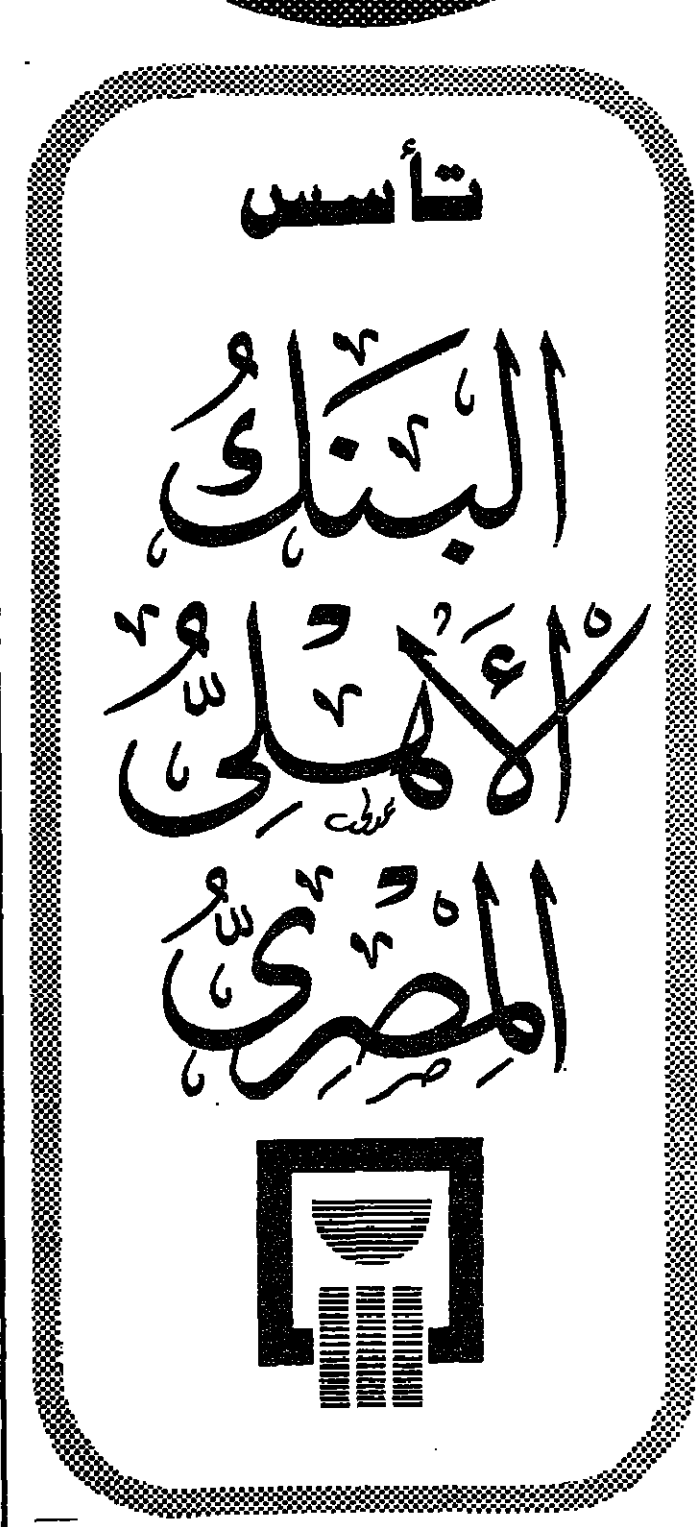 تأسس
البنكُ
الأَهْلِىُّ
المِصْرِىُّ